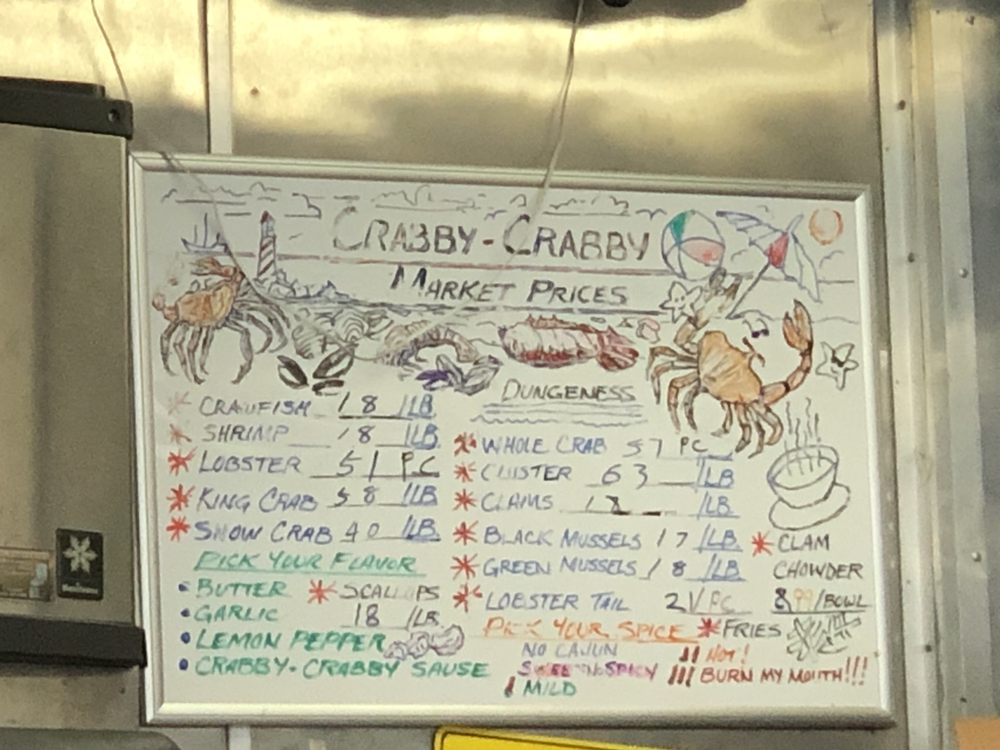 CRABBY-CRABBY
MARKET PRICES
CRAWFISH 18 /LB
SHRIMP 18 /LB
LOBSTER 51 PC
KING CRAB 58 /LB
SNOW CRAB 40 /LB
PICK YOUR FLAVOR
• BUTTER
• GARLIC
• LEMON PEPPER
• CRABBY-CRABBY SAUSE
SCALLOPS
18 /LB
DUNGENESS
WHOLE CRAB 57 PC
CLUSTER 63 /LB
CLAMS 18 /LB
BLACK MUSSELS 17 /LB
GREEN MUSSELS 18 /LB
LOBSTER TAIL 21/PC
PICK YOUR SPICE
NO CAJUN
SWEET-N-SPICY
MILD
HOT!
BURN MY MOUTH!!!
CLAM
CHOWDER
8.99/BOWL
FRIES